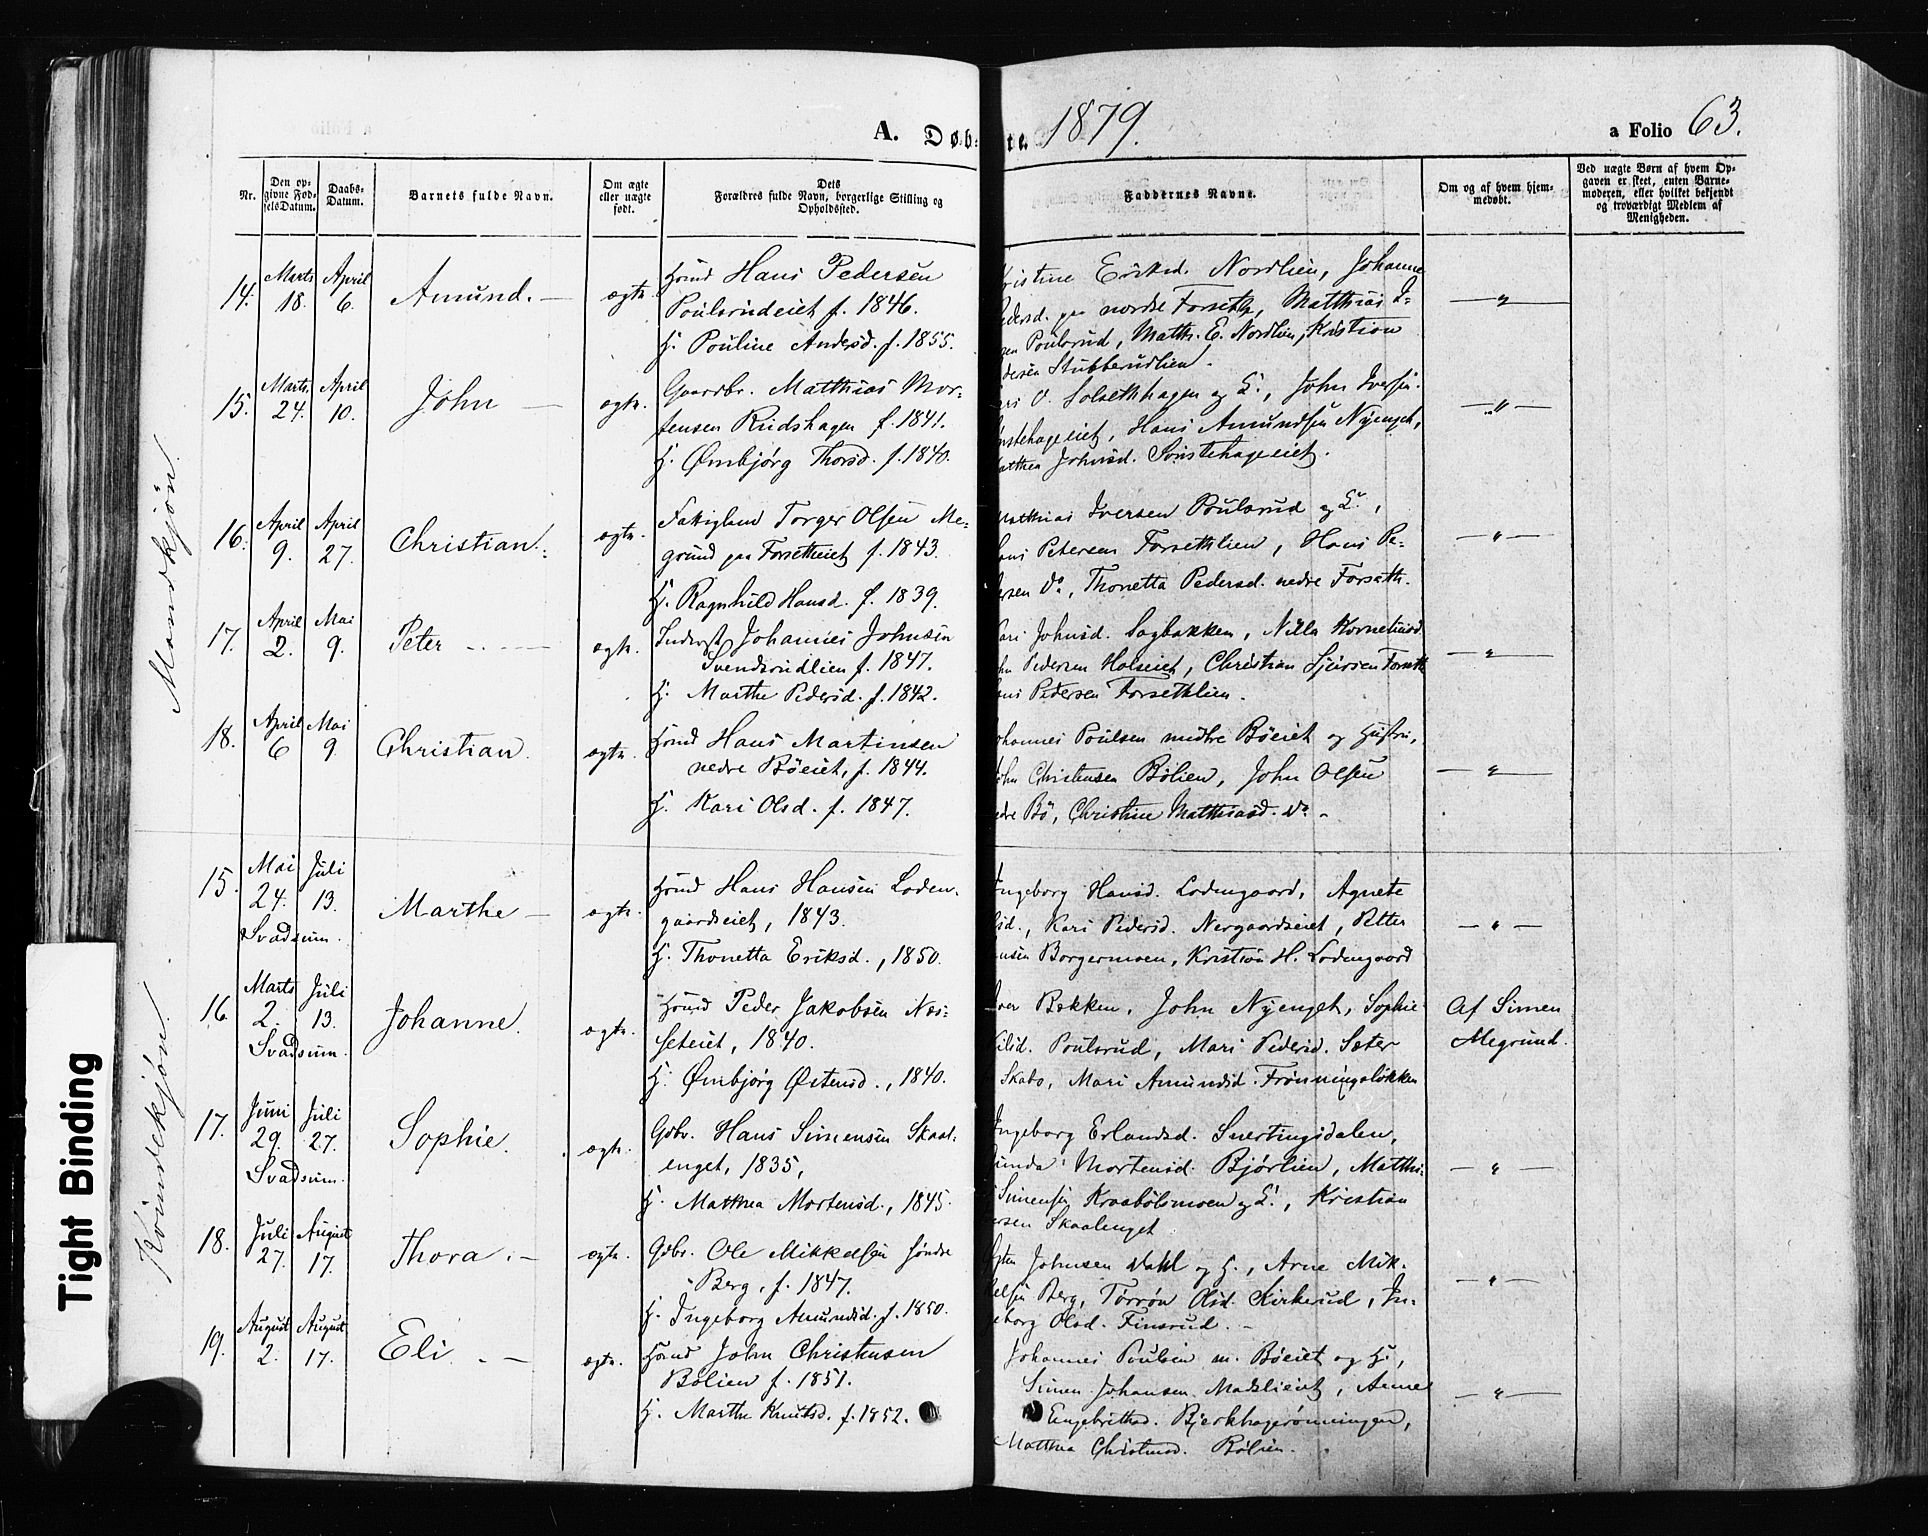 A. Døb- te. 1879.
a Folio 63.
Nr.
Den opgivne FødselsDatum.
Daabs-Datum.
Barnets fulde Navn.
Om ægte eller uægte født.
Dets Forældres fulde Navn, borgerlige Stilling og Opholdssted.
Faddernes Navne.
Om og af hvem hjemmedøbt.
Ved uægte Børn af hvem Opgaven er skeet, enten Barnemoderen, eller hvilket bekjendt og troværdigt Medlem af Menigheden.
Mandkjøn.
14. Marts 18. April 6. Amund. — ægte.
Hmd Hans Pedersen
Poulsrudeiet f. 1846.
H. Pouline Andersd. f. 1855.
ristine Eriksd. Nordlien, Johanne
edersd. paa nordre Forseth, Matthias I-
sen Poulsrud, Math. E. Nordlien, Kristian
dersen Stubberudlien.
—"—
15. Marts 24. April 10. John — ægte.
Gaardbr. Matthias Mor-
tensen Rudshagen f. 1841.
H. Ømbjørg Thorsd. f. 1840.
Solsethhagen og H., John Iversen
nstehageeiet, Hans Amundsen Nyenget,
atthea Johnsd. Sønstehageeiet.
—"—
16. April 9. April 27. Christian. ægte.
Fatiglem Torger Olsen Me-
grund paa Forsetheiet f. 1843.
H. Ragnhild Hansd. f. 1839.
Mathias Iversen Poulsrud og H.,
ans Petersen Forsethlien, Hans Pe-
ersen do, Thonetta Pedersd. nedre Forseth.
—"—
17. April 2. Mai 9. Peter — ægte.
Inderst Johannes Johnsen
Svendsrudlien f. 1847.
H. Marthe Pedersd. f. 1842.
Kari Johnsd. Sagbakken, Nilla Korneliusd
ohn Pedersen Holseiet, Christian Sjursen Forseth
ans Pedersen Forsethlien.
—"—
18. April 6 Mai 9 Christian. ægte.
Hmd Hans Martinsen
nedre Bøeiet, f. 1844.
H. Kari Olsd. f. 1847.
ohannes Poulsen midtre Bøeiet og Hustru,
John Christensen Bølien, John Olsen
edre Bø, Christine Matthiasd. do -
—"—
Kvindekjøn.
15. Mai 24. Juli 13. Marthe — ægte.
Svadsum.
Hmd Hans Hansen Loden-
gaardseiet, 1843.
H. Thonetta Eriksd., 1850.
Ingeborg Hansd. Lodengaard, Agnete
lsd., Kari Pedersd. Nergaardseiet, Petter
ansen Borgermoen, Kristian H. Lodengaard
—"—
16 Marts 2. Juli 13. Johanne. ægte.
Svadsum.
Hmd Peder Jakobsen Næs-
seteiet, 1840.
H. Ømbjørg Østensd., 1840.
Iver Bækken, John Nyenget, Sophie
ilsd. Poulsrud, Mari Pedersd. Sæter
Skabo, Mari Amundsd. Frønningsløkken
Af Simen
Megrund.
17. Juni 29. Juli 27. Sophie. ægte.
Svadsum.
Gdbr. Hans Simensen Skaal-
enget, 1835,
H. Matthea Mortensd., 1845.
Ingeborg Erlandsd. Snertingsdalen,
unda Mortensd. Bjørlien, Matthi-
Simensen Kraabølsmoen og H., Kristian
ersen Skaalenget
—"—
18. Juli 27. August 17. Thora. — ægte.
Gdbr. Ole Mikkelsen søndre
Berg, f. 1847.
H. Ingeborg Amundsd. f. 1850.
Johnsen Dahl og H., Arne Mik-
kelsen Berg, Torrøn Olsd. Kirkerud, In-
eborg Olsd. Finsrud. -
—"—
19. August 2. August 17. Eli. — ægte.
Hmd John Christensen
Bølien f. 1851.
H. Marthe Knutsd. f. 1852.
Johannes Poulsen m. Bøeiet og H.,
Simen Johansen Madslieiet, Anne
Engebrithsd. Bjerkhagerønningen,
Matthea Christensd. Bølien.
—"—
Tight Binding